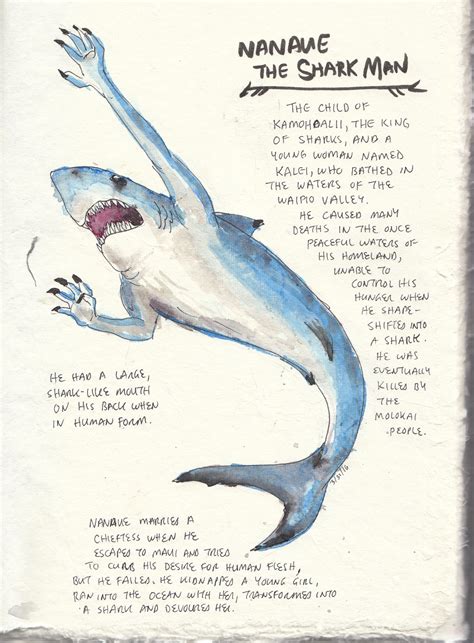 NANAUE
THE SHARK MAN
THE CHILD OF
KAMOHOALII, THE KING
OF SHARKS, AND A
YOUNG WOMAN NAMED
KALEI, WHO BATHED IN
THE WATERS OF THE
WAIPIO VALLEY.
HE CAUSED MANY
DEATHS IN THE ONCE
PEACEFUL WATERS OF
HIS HOMELAND,
UNABLE TO
CONTROL HIS
HUNGER WHEN
HE SHAPE-
SHIFTED INTO
A SHARK.
HE WAS
EVENTUALLY
KILLED BY
THE
MOLOKAI
PEOPLE.
HE HAD A LARGE,
SHARK-LIKE MOUTH
ON HIS BACK WHEN
IN HUMAN FORM.
NANAUE MARRIED A
CHIEFTESS WHEN HE
ESCAPED TO MAUI AND TRIED
TO CURB HIS DESIRE FOR HUMAN FLESH,
BUT HE FAILED. HE KIDNAPPED A YOUNG GIRL,
RAN INTO THE OCEAN WITH HER, TRANSFORMED INTO
A SHARK AND DEVOURED HER.